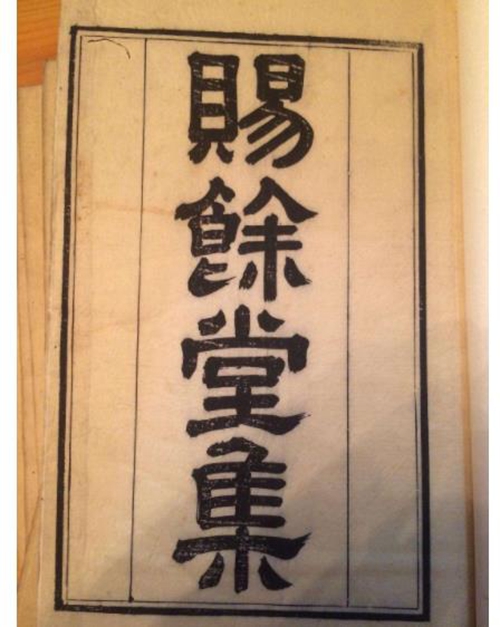 賜餘堂集